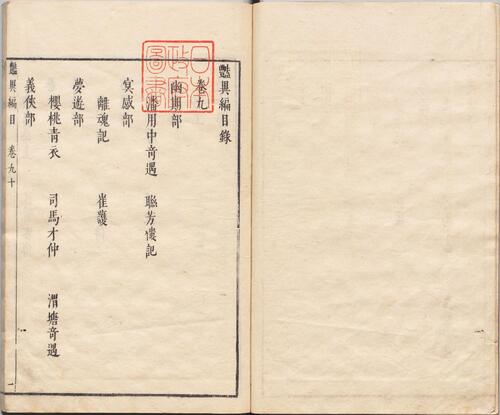 豔異編目錄
卷九
幽期部
潘用中奇遇 聯芳樓記
冥感部
離魂記 崔護
夢遊部
櫻桃青衣 司馬才仲 渭塘奇遇
義俠部
豔異編目 卷九十 一
日本
政府
圖書